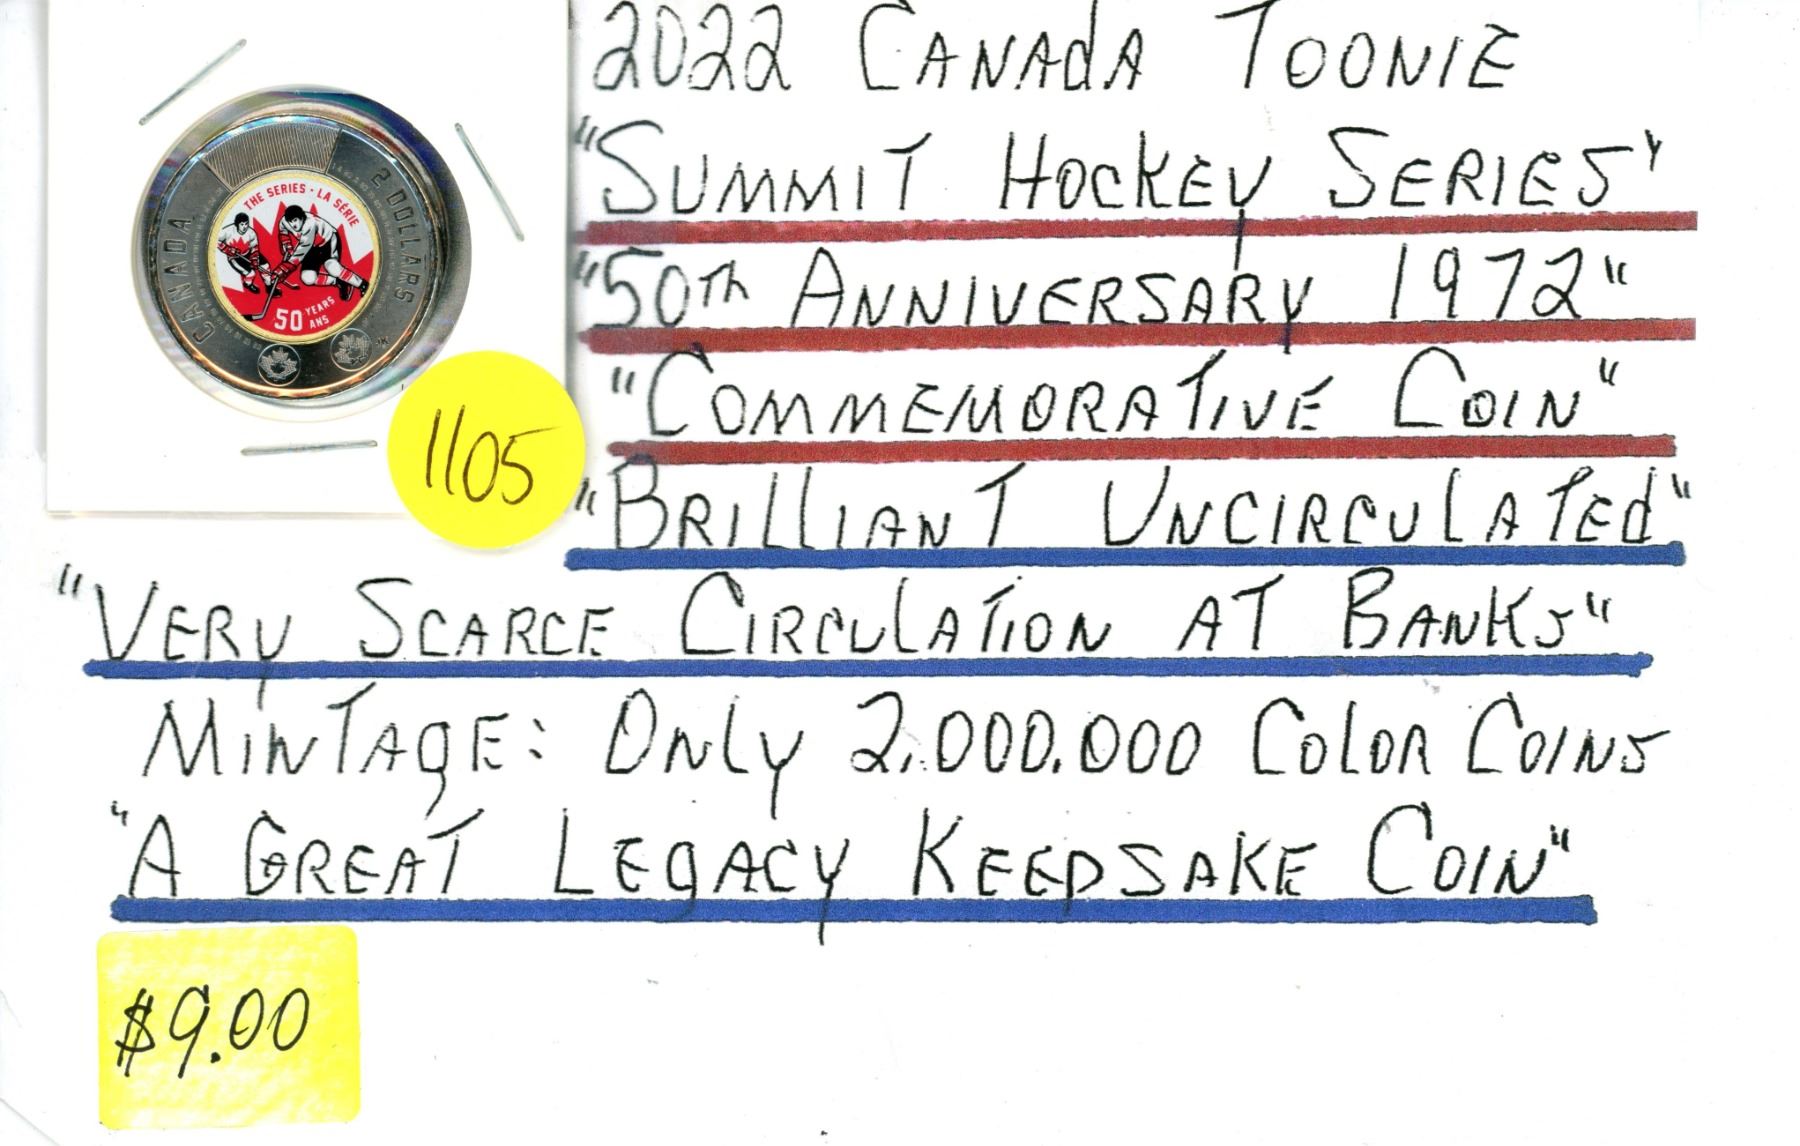 2022 CANAdA TOONIE
"SUMMIT HOCKEY SERIES"
"50th ANNIVERSARY 1972"
"COMMEMORATIVE COIN"
"BRILLIANT UNCIRCULATEd"
"VERY SCARCE CIRCULATION AT BANKS"
MINTAGE: ONLY 2,000.000 COLOR COINS
"A GREAT LEGACY KEEPSAKE COIN"
$9.00
1105
CANADA
2 DOLLARS
THE SERIES · LA SÉRIE
50 YEARS
ANS
JK